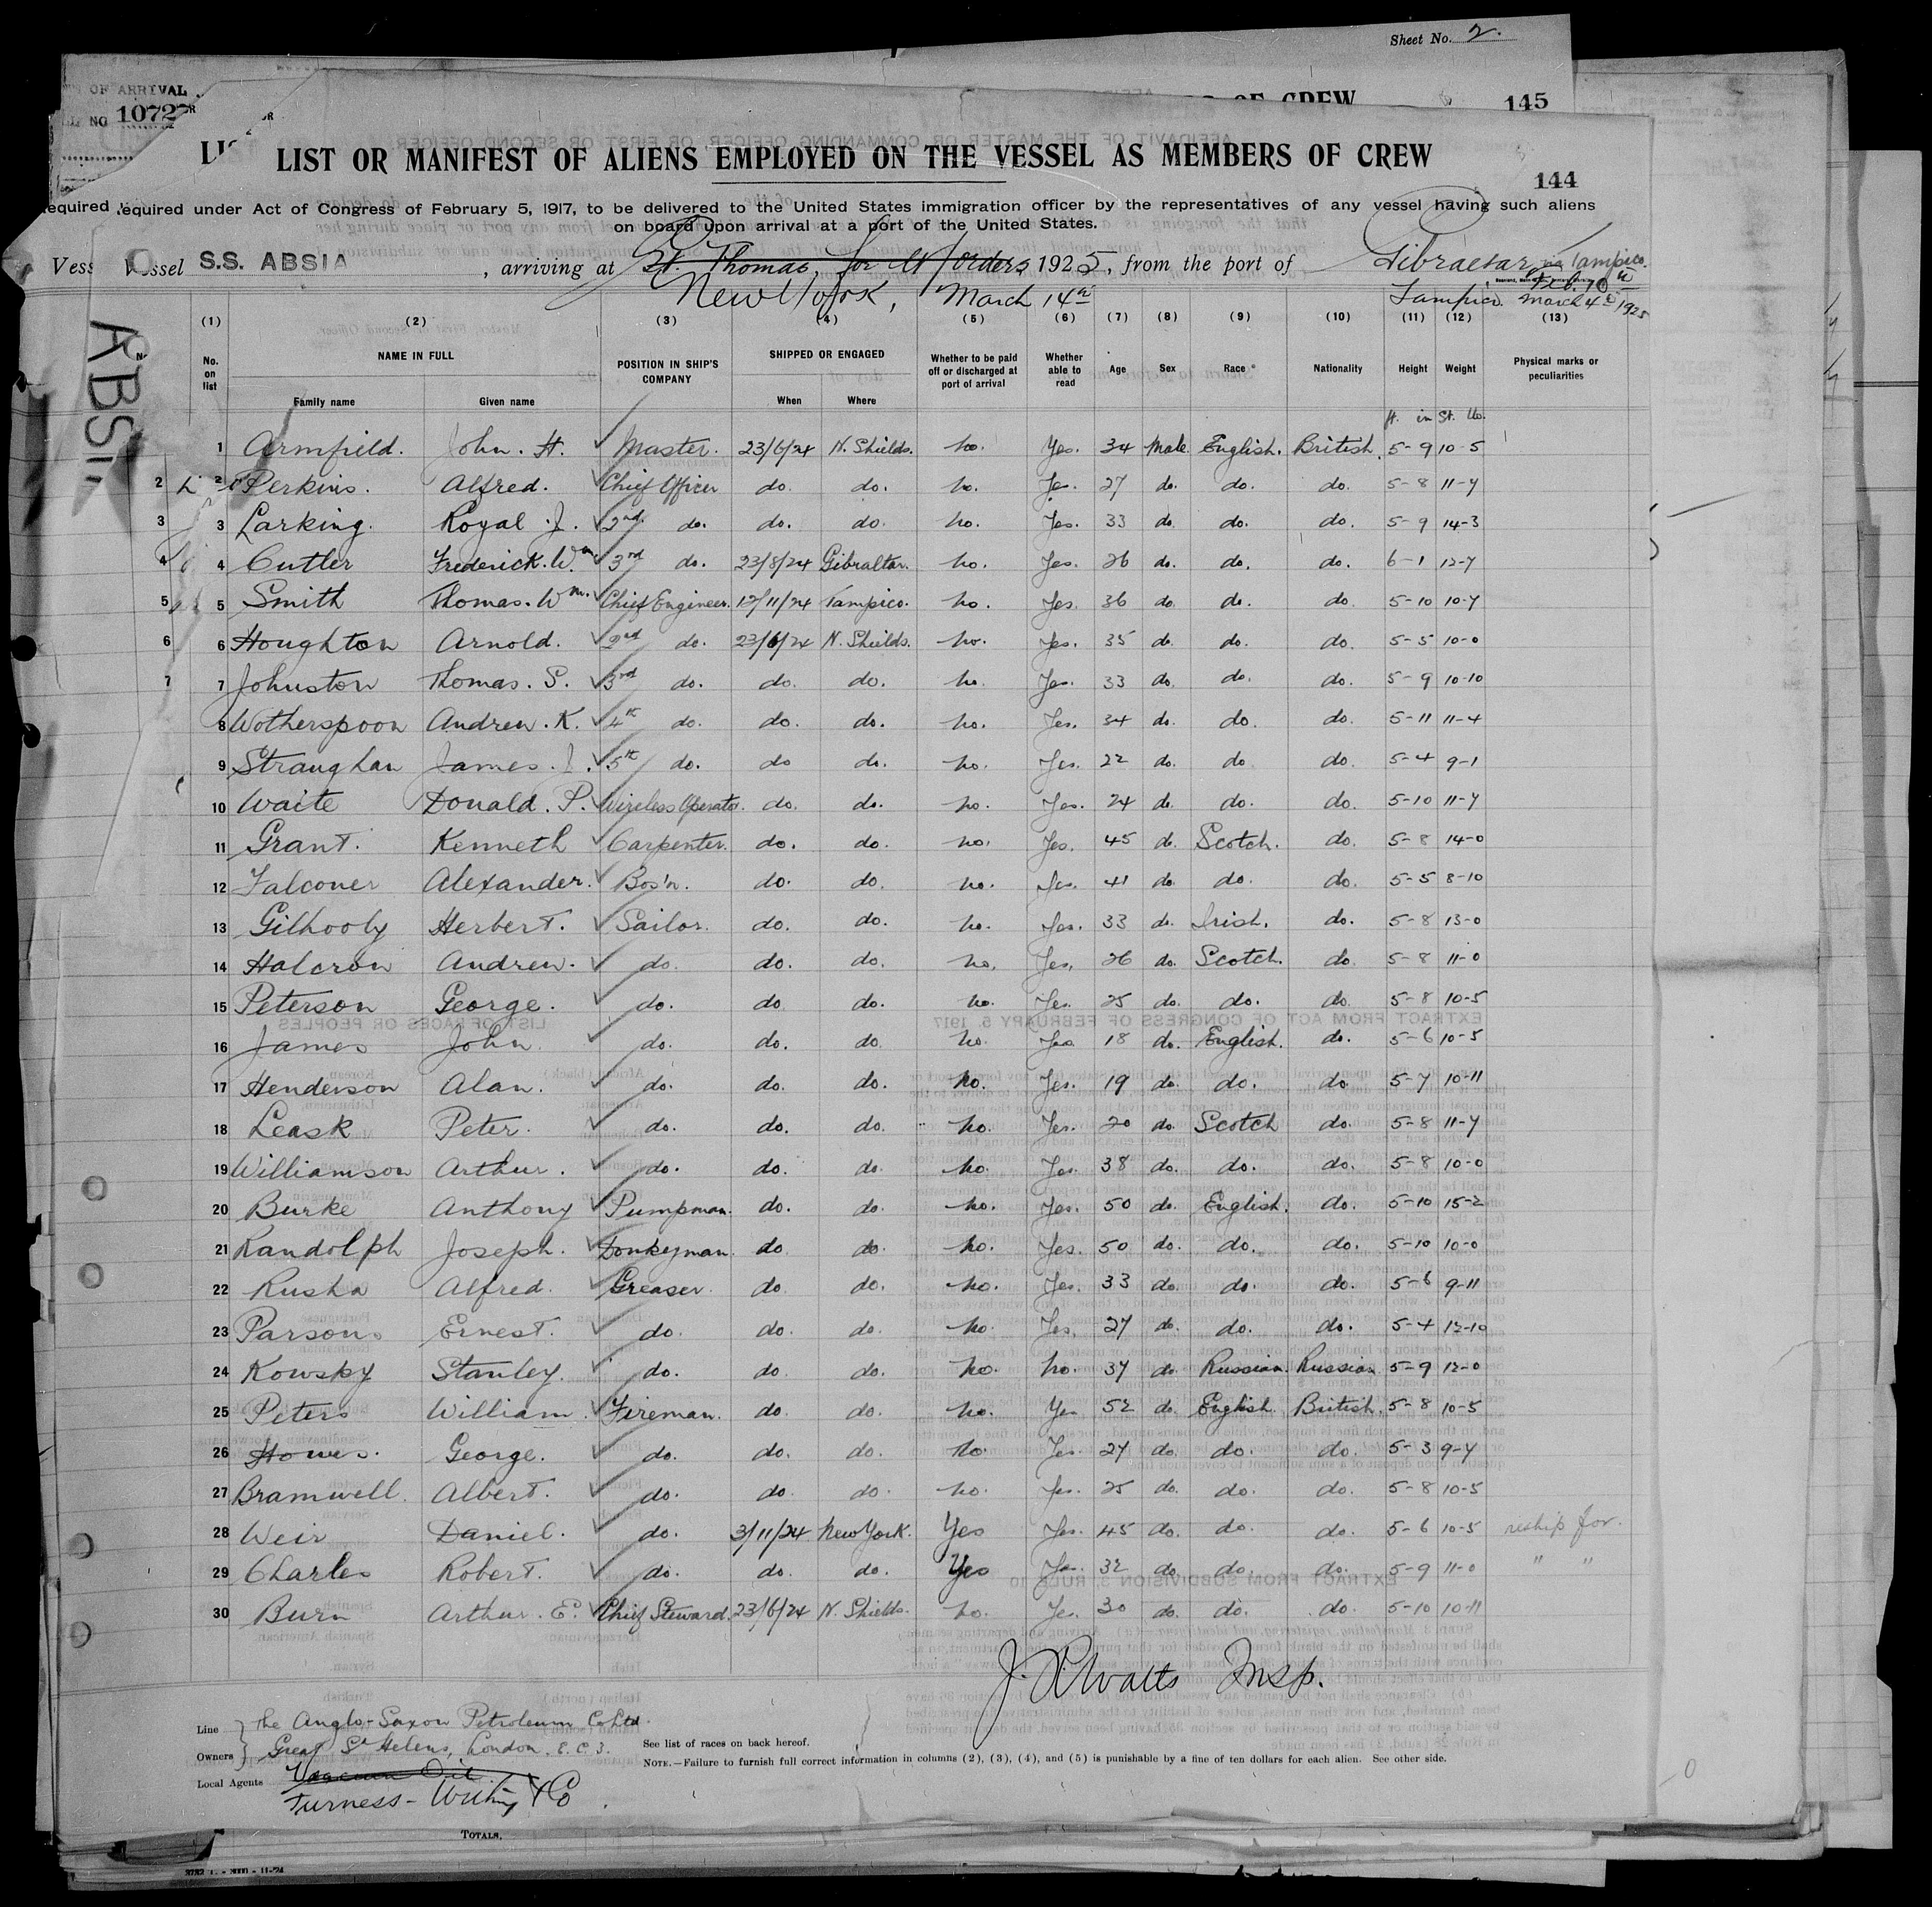 Sheet No. 2.
OF ARRIVAL
NO 1072
OF CREW
145
LIST OR MANIFEST OF ALIENS EMPLOYED ON THE VESSEL AS MEMBERS OF CREW
144
required under Act of Congress of February 5, 1917, to be delivered to the United States immigration officer by the representatives of any vessel having such aliens
on board upon arrival at a port of the United States.
Vessel S.S. ABSIA, arriving at St. Thomas, for Orders 1925, from the port of Gibraltar, via Tampico.
Feb. 10th
New York, March 14th
Tampico March 4th 1925
(1) (2) (3) (4) (5) (6) (7) (8) (9) (10) (11) (12) (13)
No. on list NAME IN FULL Family name Given name POSITION IN SHIP'S COMPANY SHIPPED OR ENGAGED When Where Whether to be paid off or discharged at port of arrival Whether able to read Age Sex Race Nationality Height Weight Physical marks or peculiarities
ft. in St. lb.
ABSIA
1 Armfield. John. H. Master. 23/6/24 N. Shields. No. Yes. 34 Male English. British. 5-9 10-5
2 Perkins. Alfred. Chief Officer do. do. No. Yes. 27 do. do. do. 5-8 11-7
3 Larking. Royal. J. 2nd do. do. do. No. Yes. 33 do. do. do. 5-9 14-3
4 Cutler Frederick. Wm. 3rd do. 23/8/24 Gibraltar. No. Yes. 26 do. do. do. 6-1 12-7
5 Smith Thomas. Wm. Chief Engineer. 12/11/24 Tampico. No. Yes. 36 do. do. do 5-10 10-7
6 Houghton Arnold. 2nd do. 23/6/24 N. Shields. No. Yes. 35 do. do. do. 5-5 10-0
7 Johnston Thomas. S. 3rd do. do. do. No. Yes. 33 do. do. do. 5-9 10-10
8 Wotherspoon Andrew. K. 4th do. do. do. No. Yes. 34 do. do. do. 5-11 11-4
9 Straughan James. J. 5th do. do do. No. Yes. 22 do. do do. 5-4 9-1
10 Waite Donald. P. Wireless Operator. do. do. No. Yes. 24 do. do. do. 5-10 11-7
11 Grant. Kenneth Carpenter. do. do. No. Yes. 45 do. Scotch. do. 5-8 14-0
12 Falconer Alexander. Bos'n. do. do. No. Yes. 41 do. do. do. 5-5 8-10
13 Gilhooly Herbert. Sailor. do. do. No. Yes. 33 do. Irish. do. 5-8 13-0
14 Halcrow Andrew. do. do. do. No. Yes. 26 do. Scotch. do 5-8 11-0
15 Peterson George. do. do. do. No. Yes. 25 do. do. do. 5-8 10-5
16 James John. do. do. do No. Yes 18 do. English. do. 5-6 10-5
17 Henderson Alan. do. do. do. No. Yes. 19 do. do. do 5-7 10-11
18 Leask Peter. do. do. do. No. Yes. 20 do. Scotch do. 5-8 11-7
19 Williamson Arthur. do. do. do. No. Yes. 38 do. do. do. 5-8 10-0
20 Burke Anthony Pumpman. do. do. No. Yes. 50 do. English. do. 5-10 15-2
21 Randolph Joseph. Donkeyman. do do. No. Yes. 50 do. do. do. 5-10 10-0
22 Rusha Alfred. Greaser. do do. No. Yes. 33 do. do. do. 5-6 9-11
23 Parsons Ernest. do. do. do. No. Yes. 27 do. do. do. 5-4 12-10
24 Kowsky Stanley. do. do. do. No. No. 37 do. Russian. Russian 5-9 12-0
25 Peters William. Fireman. do. do. No. Yes 52 do. English. British. 5-8 10-5
26 Howes. George. do. do. do. No. Yes. 27 do. do. do. 5-3 9-7
27 Bramwell. Albert. do. do. do. No. Yes. 25 do. do. do. 5-8 10-5
28 Weir Daniel. do. 3/11/24 New York. Yes Yes. 45 do. do. do. 5-6 10-5 reship for.
29 Charles Robert. do. do. do. Yes Yes. 32 do. do. do. 5-9 11-0 " "
30 Burn Arthur. E. Chief Steward. 23/6/24 N. Shields. No. Yes. 30 do. do. do 5-10 10-11
J. Watts Insp.
Line The Anglo-Saxon Petroleum Co Ltd.
Owners Great St Helens, London, E.C.3.
See list of races on back hereof.
NOTE.—Failure to furnish full correct information in columns (2), (3), (4), and (5) is punishable by a fine of ten dollars for each alien. See other side.
Local Agents Vacuum Oil
Furness-Withy & Co.
TOTALS.